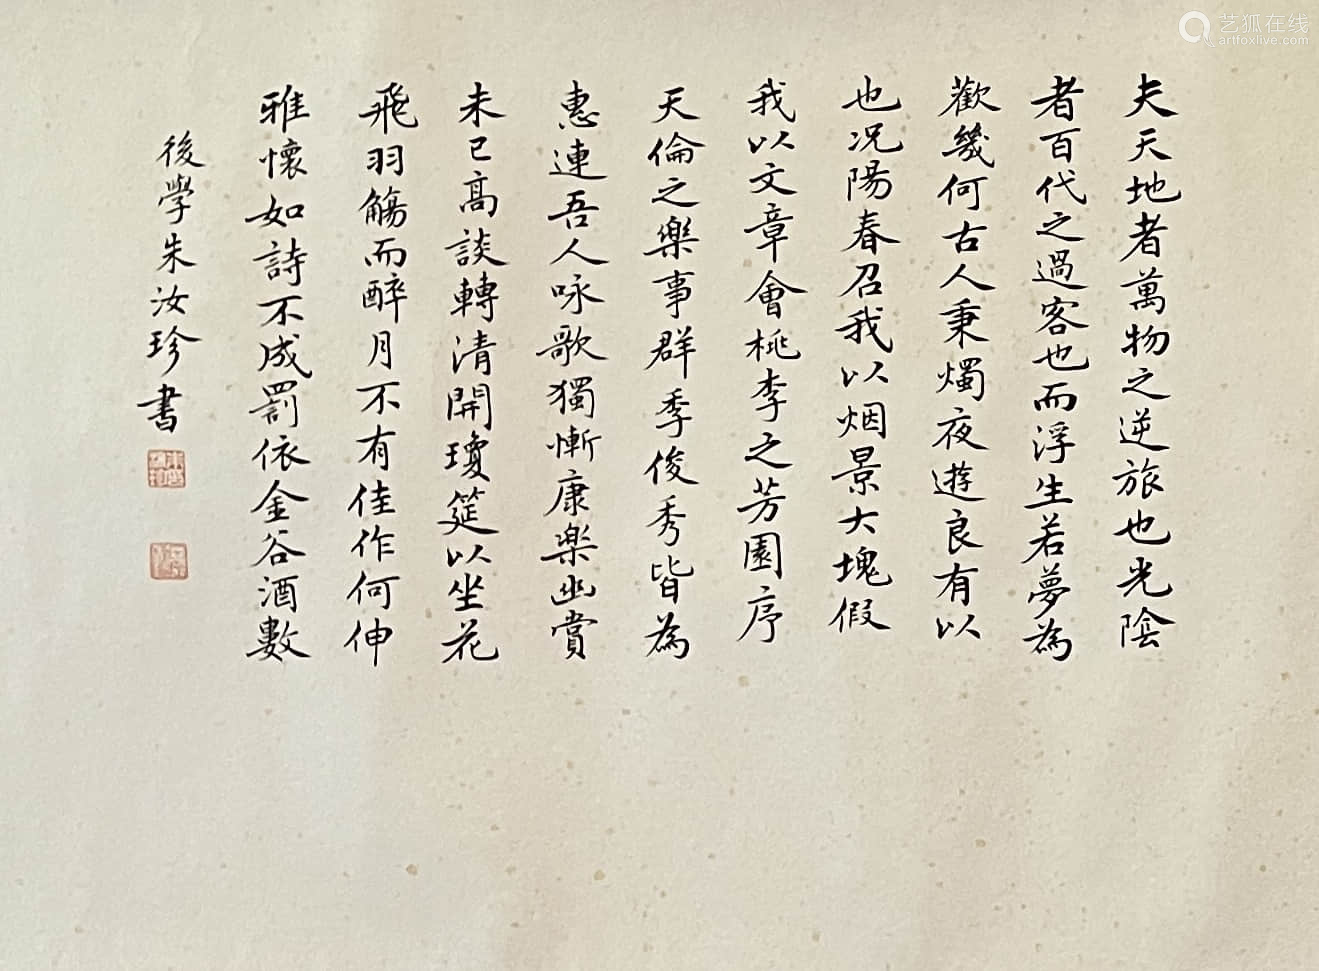 夫天地者萬物之逆旅也光陰
者百代之過客也而浮生若夢為
歡幾何古人秉燭夜遊良有以
也況陽春召我以烟景大塊假
我以文章會桃李之芳園序
天倫之樂事群季俊秀皆為
惠連吾人咏歌獨慚康樂幽賞
未已高談轉清開瓊筵以坐花
飛羽觴而醉月不有佳作何伸
雅懷如詩不成罰依金谷酒數
後學朱汝珍書
艺狐在线
artfoxlive.com